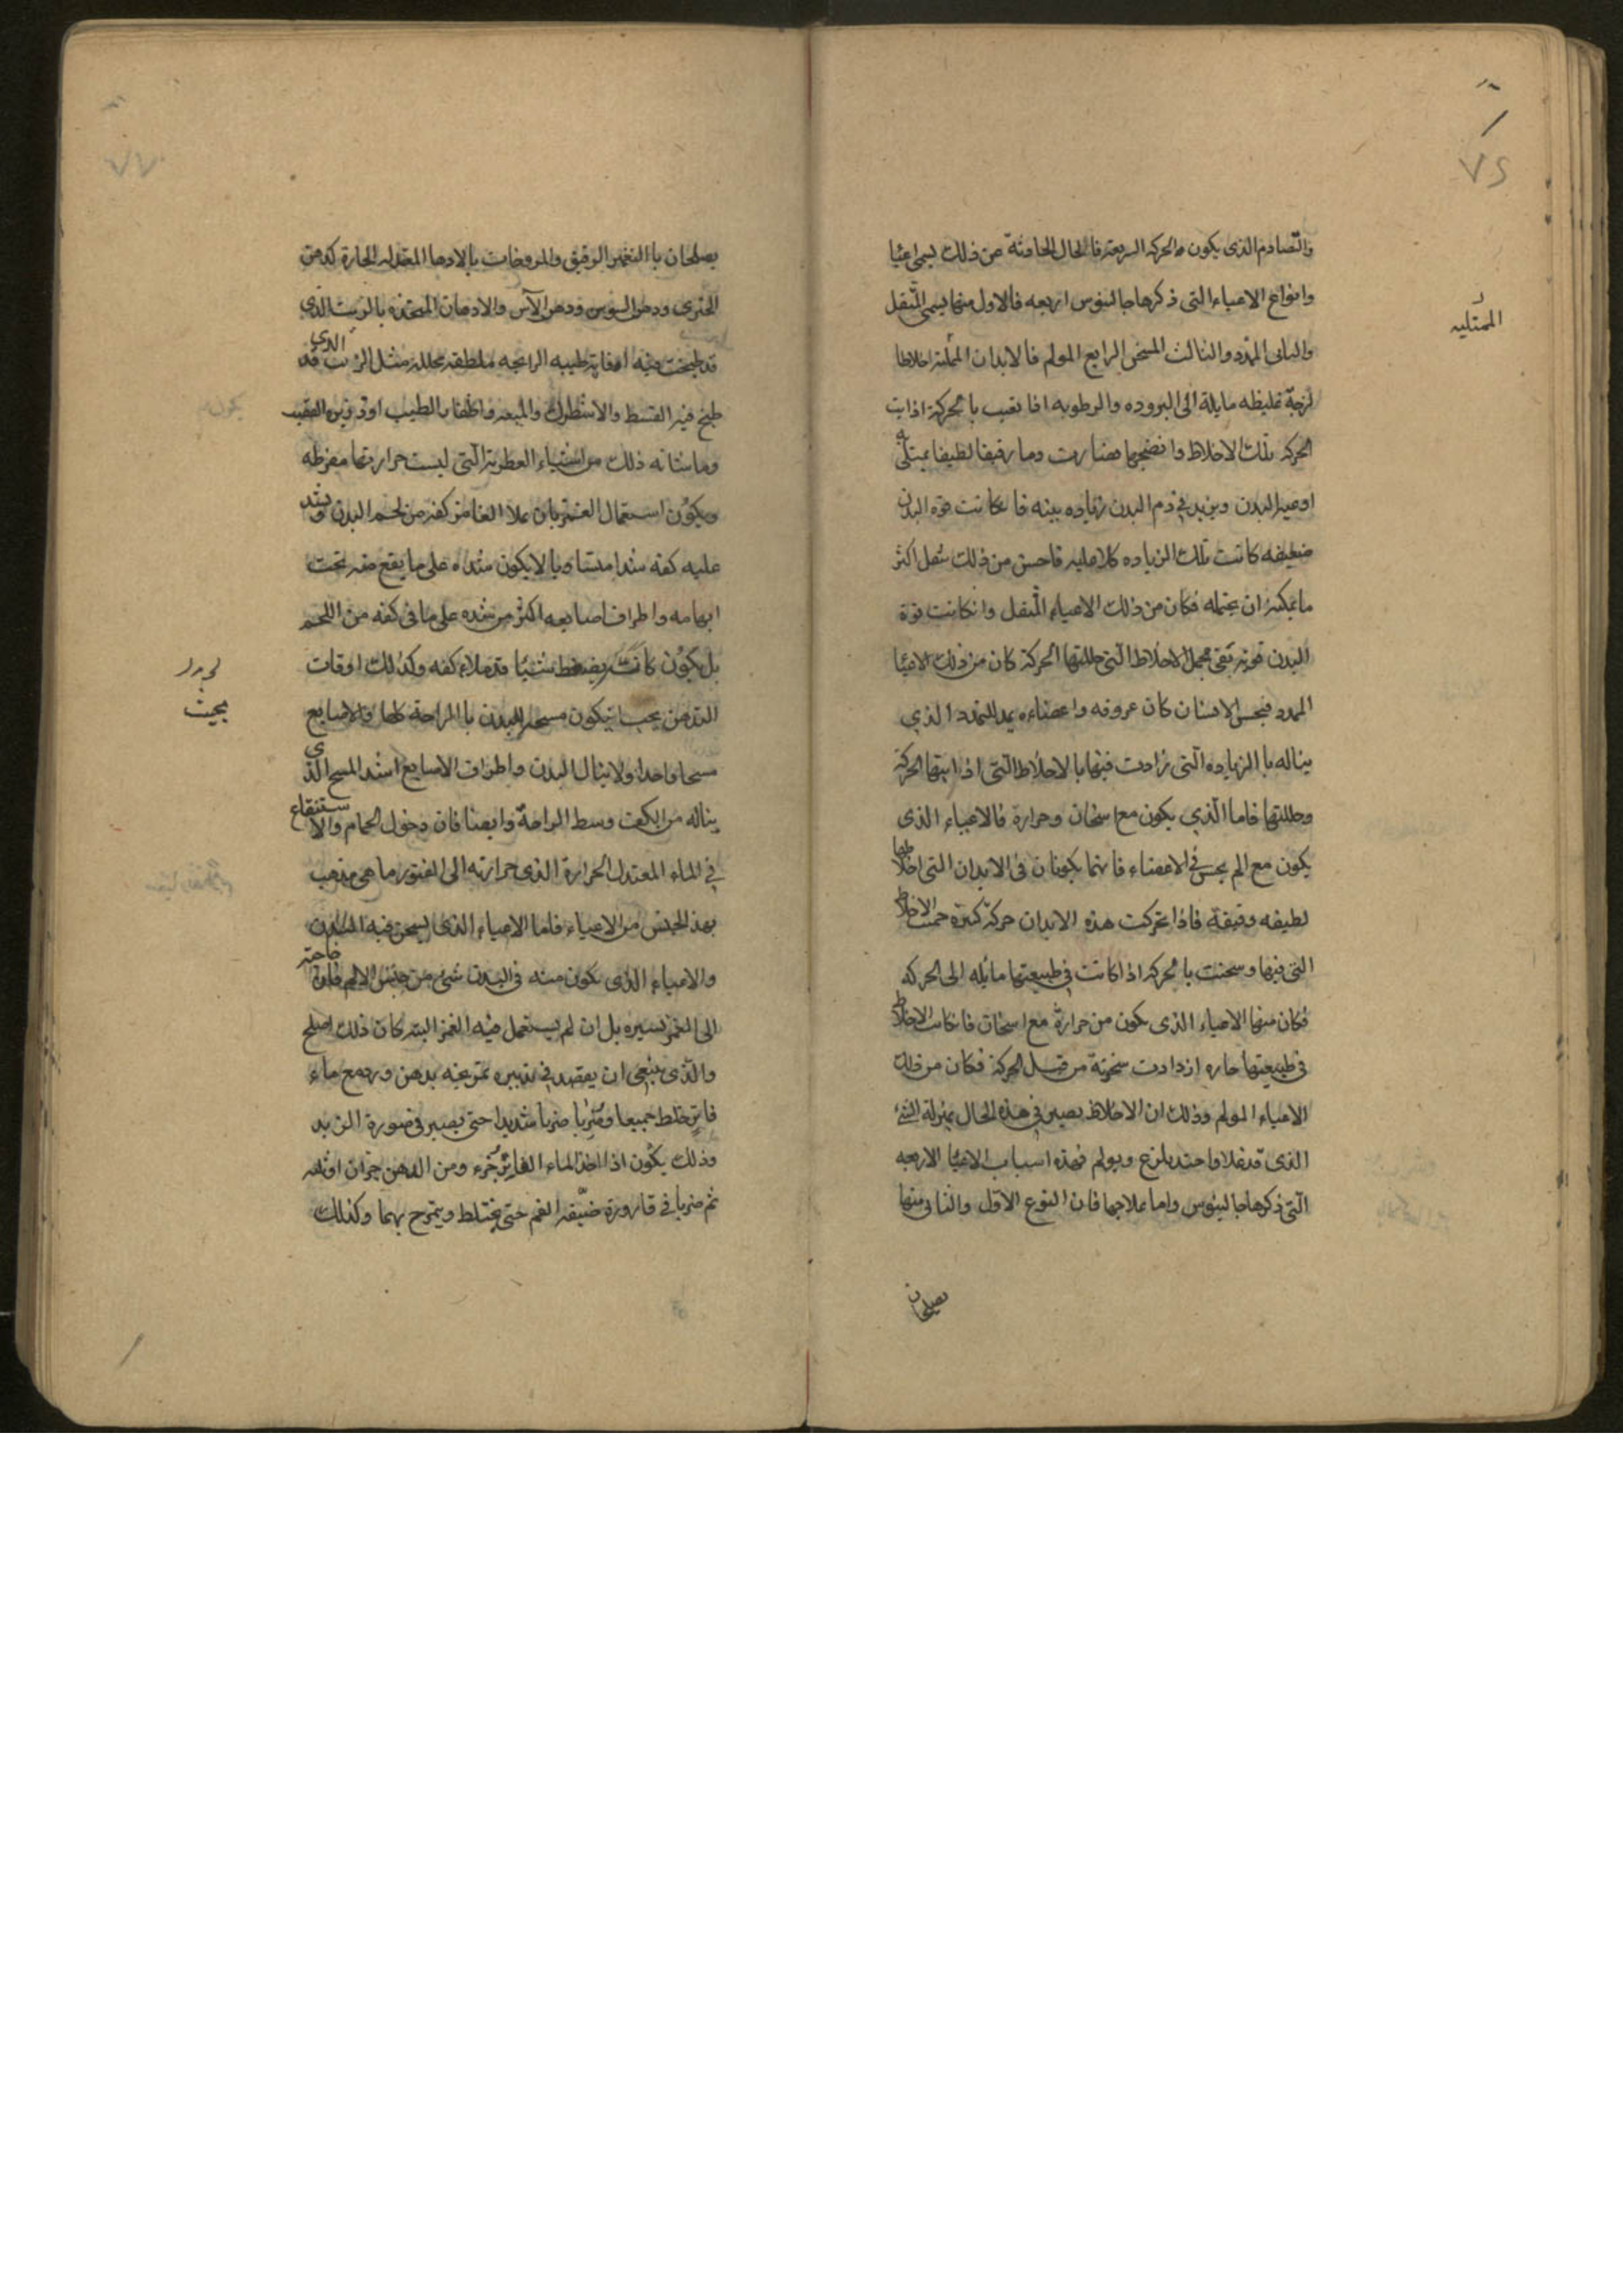 ٧٤
والتصادم الذى يكون من الحركه السريعة فالحال الحادثة عن ذلك يسمى اعيا
وانواع الاعياء التى ذكرها جالينوس اربعه فالاول منها يسمى المثقل
الممتليه
والثانى الممدد والثالث المسخن الرابع المولم فالابدان الممتلية اخلاطا
لزجة غليظه مايلة الى البروده والرطوبه اذا تعب بالحركة اذابت
الحركه تلك الاخلاط وانضجها فصارت دما رقيقا لطيفا يمتلى به
اوعية البدن ويزيد فى دم البدن زياده بينه فان كانت قوة البدن
ضعيفه كانت تلك الزياده كلا عليه فاحس من ذلك بثقل اكثر
ما يمكنه ان يحتمله فكان من ذلك الاعياء المثقل وان كانت قوة
البدن قويه تفى بحمل الاخلاط التى حللتها الحركة كان من ذلك الاعيا
الممدد فيحس الانسان كان عروقه واعضاءه يمد للتمدد الذي
يناله با الزياده التى زادت فيها بالاخلاط التى اذابتها الحركة
وحللتها فاما الذي يكون مع اسخان وحرارة فالاعياء الذى
يكون مع الم يحس فى الاعضاء فانهما يكونان فى الابدان التى اخلاطها
لطيفه رقيقة فاذا تحركت هذه الابدان حركة كثيرة حميت الاخلاط
التى فيها وسخنت بالحركة اذا كانت فى طبيعتها مائله الى الحركه
فكان منها الاعياء الذى يكون من حرارة مع اسخان فان كانت الاخلاط
فى طبيعتها حاره ازدادت سخونة من قبل الحركة فكان من ذلك
الاعياء المولم وذلك ان الاخلاط يصير فى هذه الحال بمنزلة الشئ
الذى قد غلا واحتد يلذع ويولم فهذه اسباب الاعيا الاربعه
التى ذكرها جالينوس واما علاجها فان النوع الاول والثانى منها
يصلحان
٧٧
يصلحان با الغمز الرقيق والمروخات بالادهان المعتدله الحارة كدهن
الخيرى ودهن السوسن ودهن الآس والادهان المتخذه بالزيت الذى
قد طبخت فيه افاويه طيبه الرائحه ملطفه محلله مثل الزيت الذى قد
طبخ فيه القسط والاسطرك والميعه واظفار الطيب
وما شابه ذلك من الاشياء العطرية التى ليست حرارتها مفرطه
ويكون استعمال الغمز بان يملأ الغامز كفه من لحم البدن ويشد
عليه كفه شدا متساويا لا يكون شداه على ما يقع منه تحت
ابهامه واطراف اصابعه اكثر من شده على ما فى كفه من اللحم
بل يكون كانه يضغط شيئا قد ملاء كفه وكذلك اوقات
بحيث
التدهن يجب ان يكون مسحه البدن با الراحة كلها والاصابع
مسحا واحدا ولا ينال البدن واطراف الاصابع اشد المسح الذى
يناله من الكف وسط الراحة وايضا فان دخول الحمام والاستنقاع
فى الماء المعتدل الحرارة الذى حرارته الى الفتور ما هى مذهب
بهذ الجنس من الاعياء فاما الاعياء الذى يسخن فيه البدن
والاعياء الذى يكون منه فى البدن شئ من جنس الالم فان حاجته
الى الغمز يسيره بل ان لم يستعمل فيه الغمز البته كان ذلك اصلح
والذى ينبغى ان يعتمد فى تدبيره تمريخه بدهن ورد مع ماء
فاتر خلط جميعا وضربا ضربا شديدا حتى يصير فى صورة الزبد
وذلك يكون اذا اخذ الماء الفاتر جزء ومن الدهن جزان او ثلثه
ثم ضربا فى قارورة ضيقه الفم حتى يختلط ويمتزج بهما وكذلك